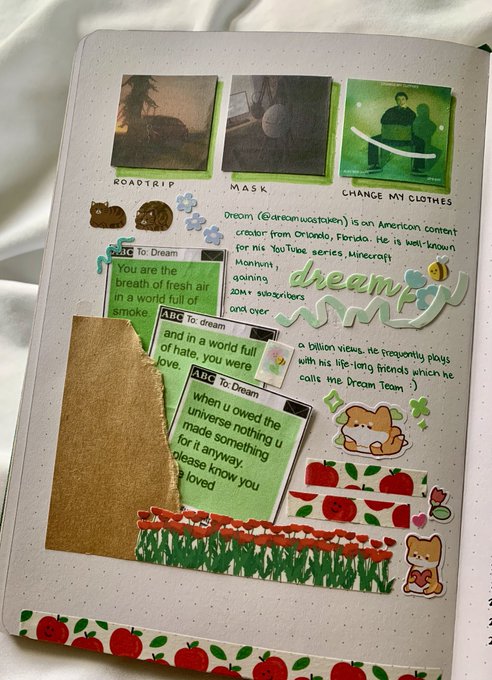 ROADTRIP
MASK
CHANGE MY CLOTHES
Dream (@dreamwastaken) is an American content
creator from Orlando, Florida. He is well-known
for his YouTube series, Minecraft
Manhunt,
gaining
20M+ subscribers
and over
dream
a billion views. He frequently plays
with his life-long friends which he
calls the Dream Team :)
To: Dream
You are the
breath of fresh air
in a world full of
smoke.
ABC To: dream
and in a world full
of hate, you were
love.
ABC To: Dream
when u owed the
universe nothing u
made something
for it anyway.
please know you
loved